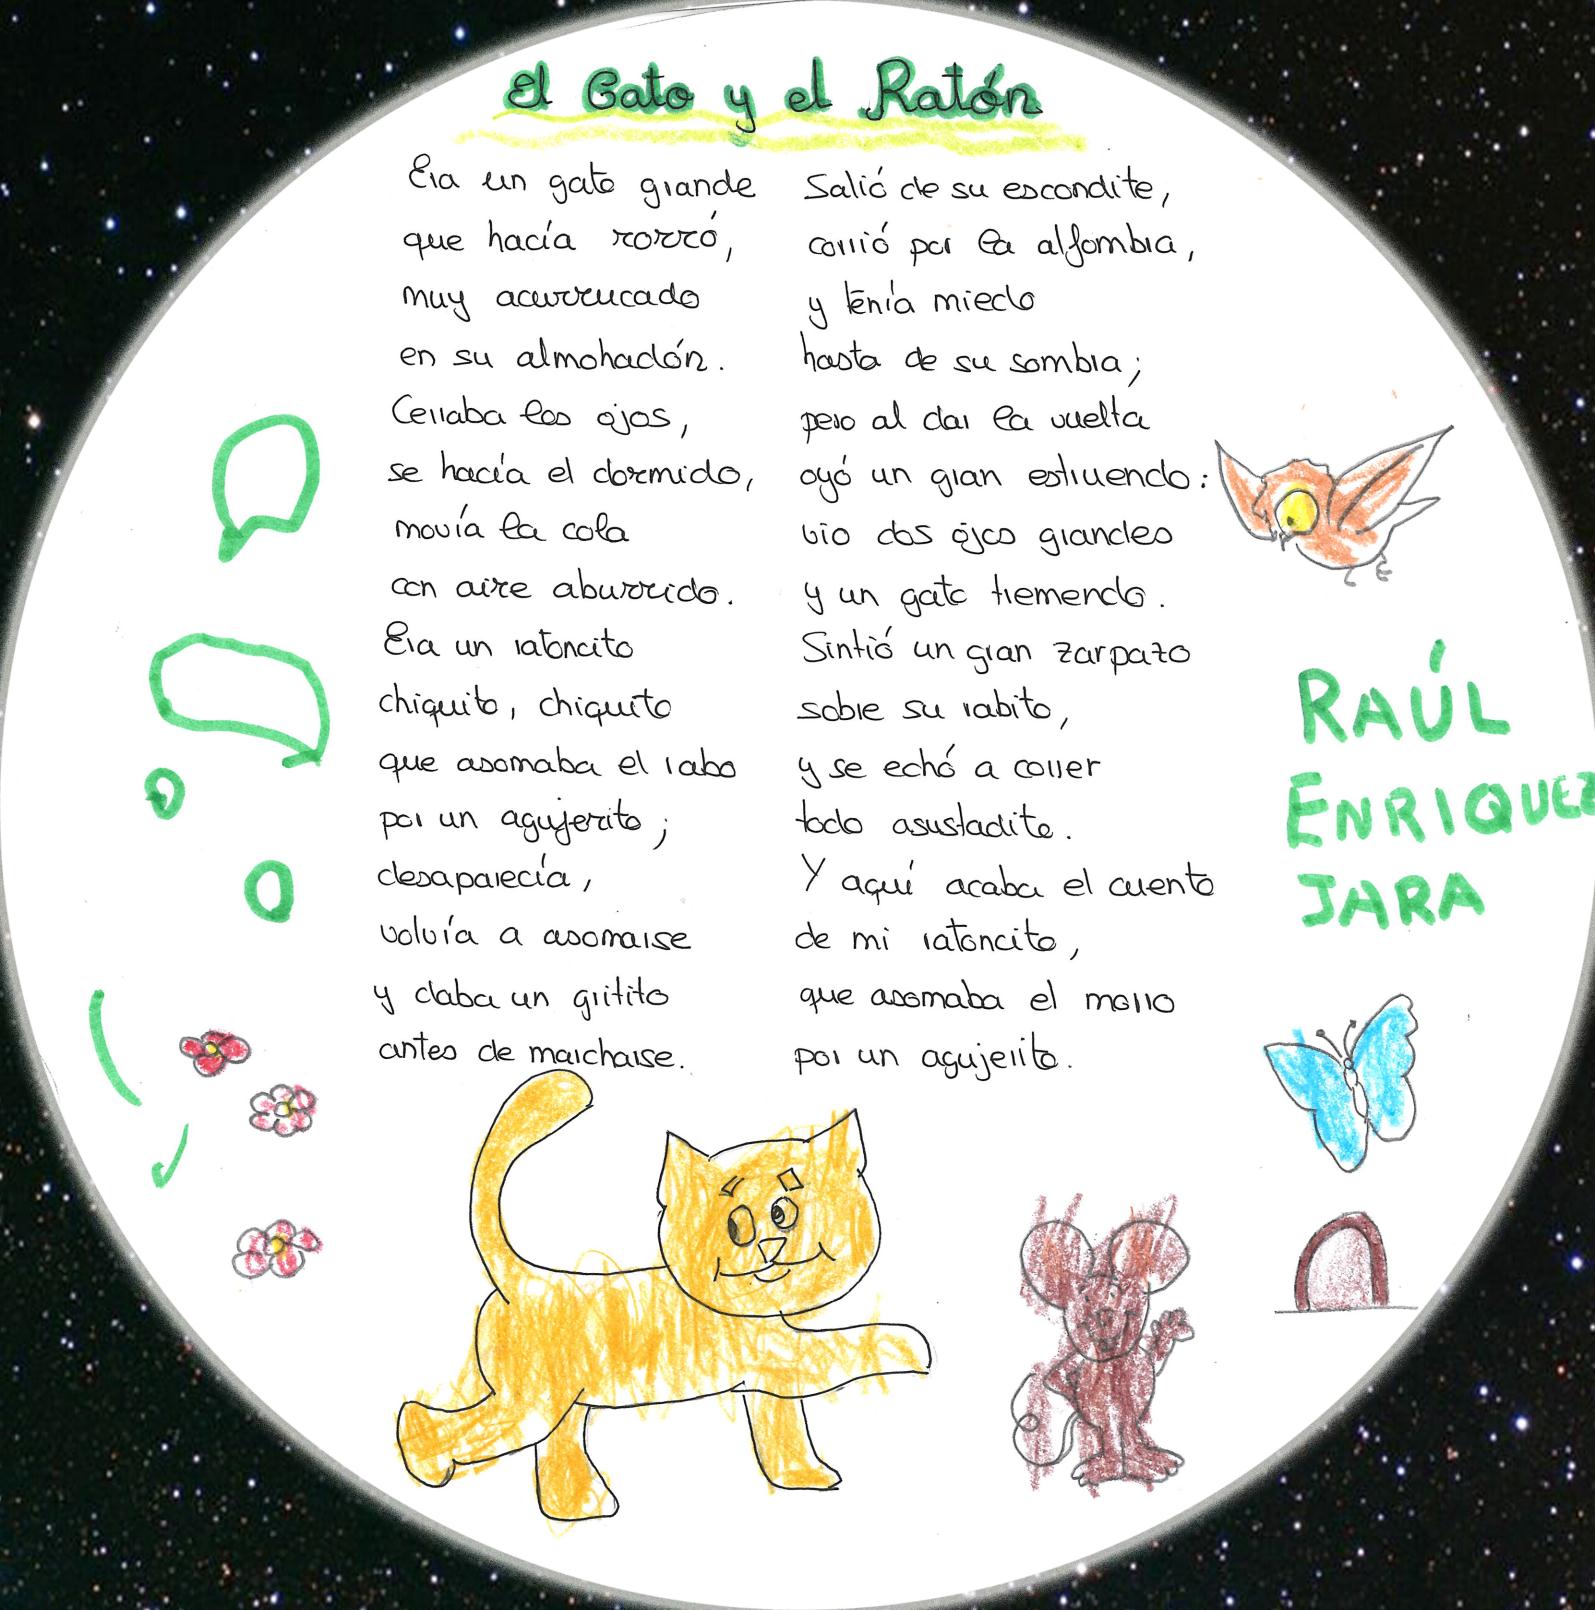 El Gato y el Ratón
Era un gato grande
que hacía rorró,
muy acurrucado
en su almohadón.
Cerraba los ojos,
se hacía el dormido,
movía la cola
con aire aburrido.
Era un ratoncito
chiquito, chiquito
que asomaba el rabo
por un agujerito;
desaparecía,
volvía a asomarse
y daba un gritito
antes de marcharse.
Salió de su escondite,
corrió por la alfombra,
y tenía miedo
hasta de su sombra;
pero al dar la vuelta
oyó un gran estruendo:
vio dos ojos grandes
y un gato tremendo.
Sintió un gran zarpazo
sobre su rabito,
y se echó a correr
todo asustadito.
Y aquí acaba el cuento
de mi ratoncito,
que asomaba el morro
por un agujerito.
RAÚL
ENRIQUEZ
JARA